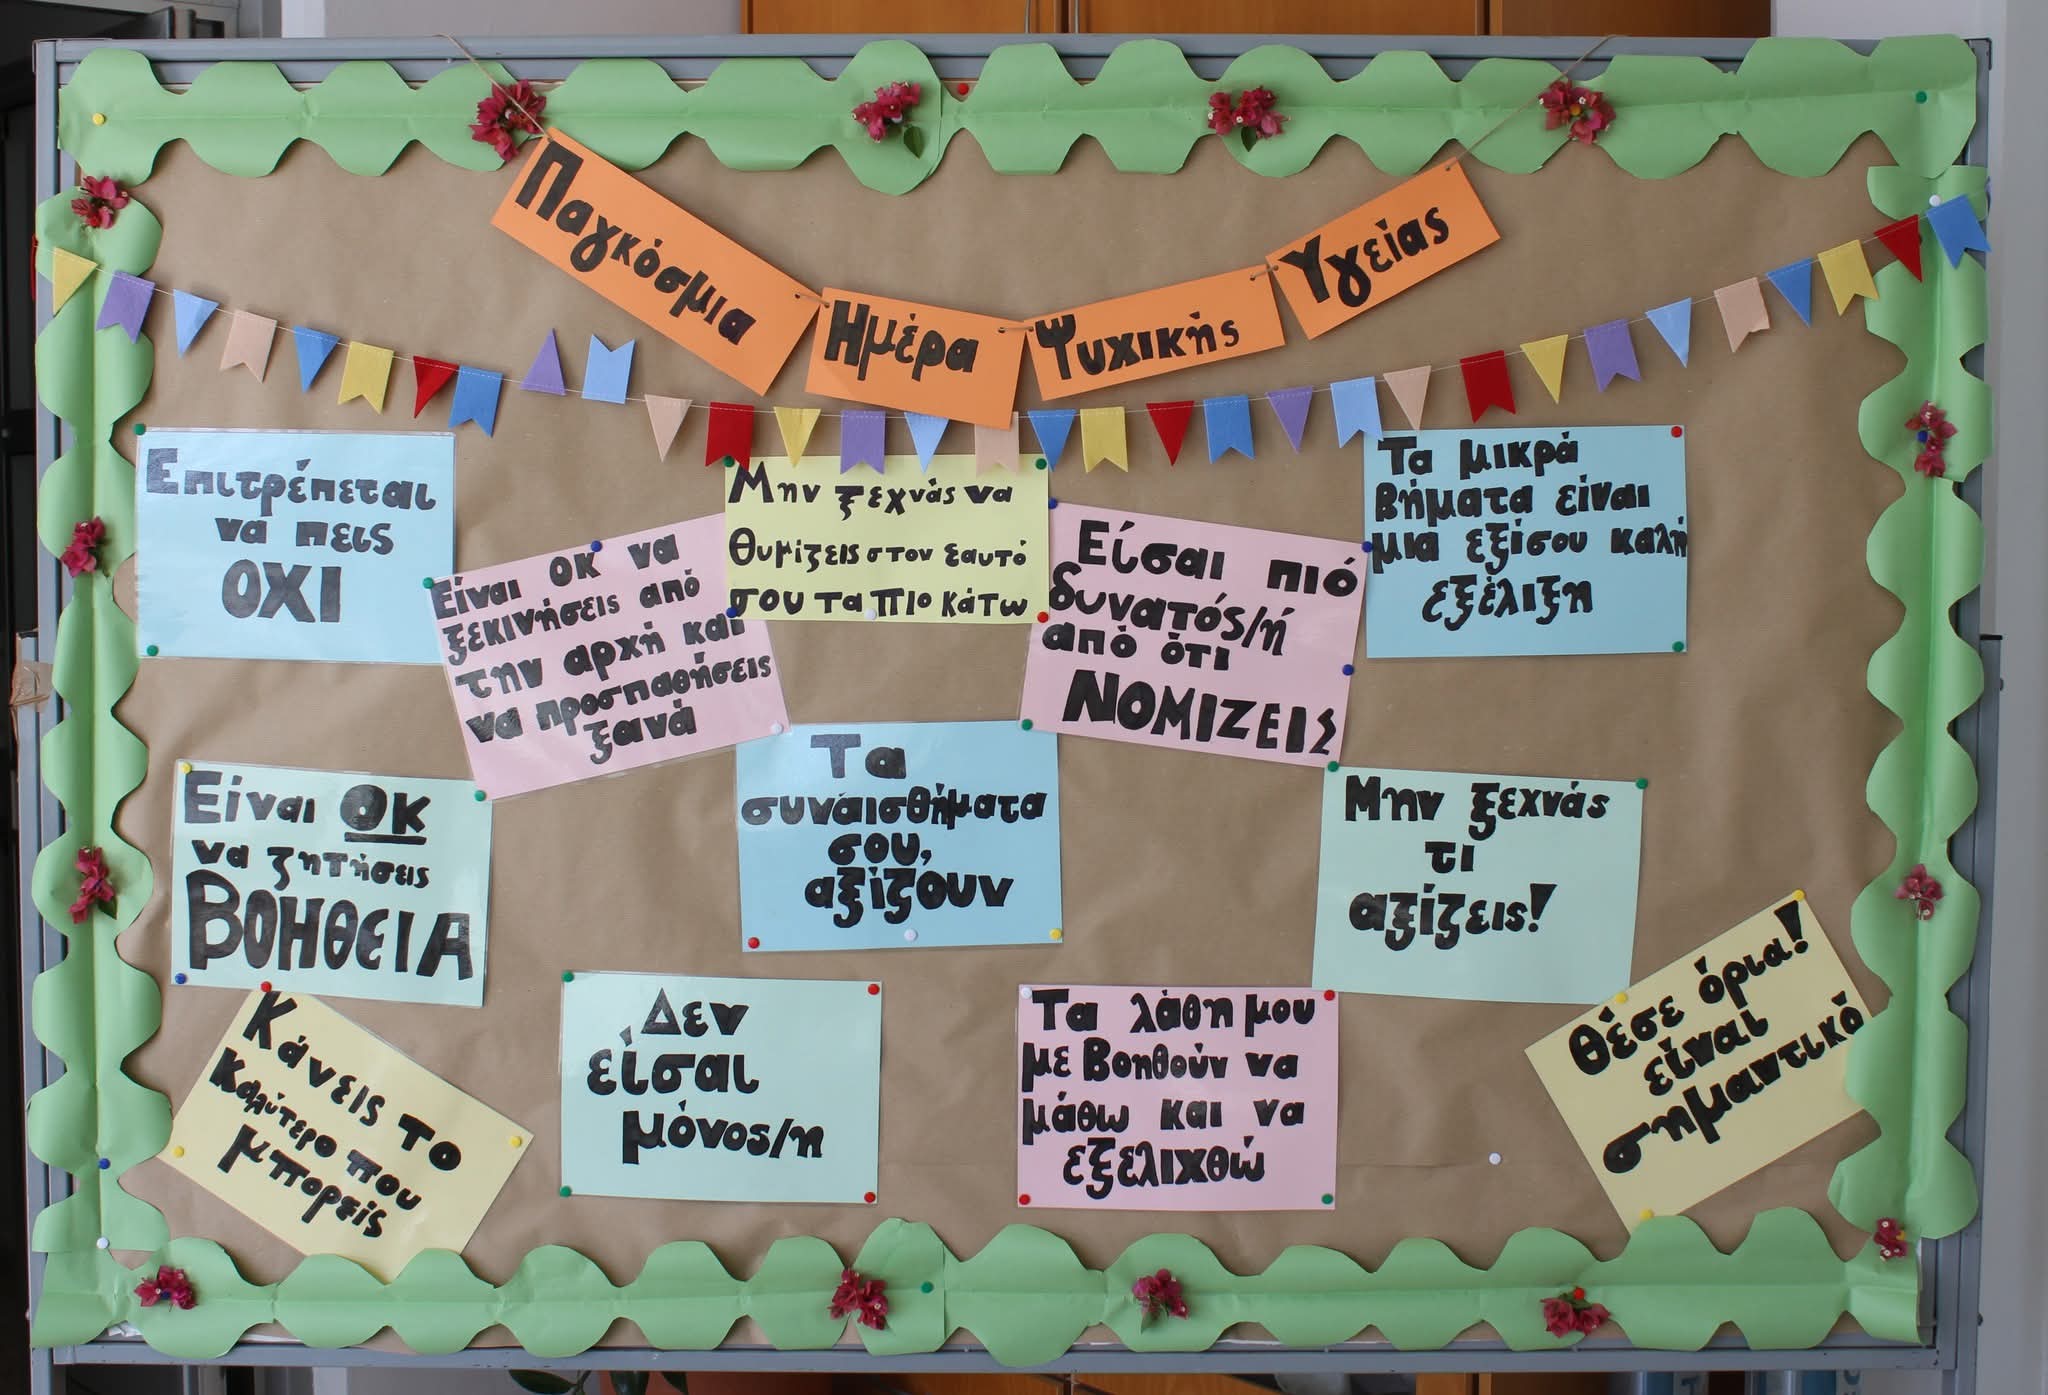 Παγκόσμια
Ημέρα
Ψυχικής
Υγείας
Επιτρέπεται
να πεις
ΟΧΙ
Είναι ΟΚ να
ξεκινήσεις από
την αρχή και
να προσπαθήσεις
ξανά
Μην ξεχνάς να
θυμίζεις στον εαυτό
σου τα πιο κάτω
Είσαι πιό
δυνατός/ή
από ότι
ΝΟΜΙΖΕΙΣ
Τα μικρά
βήματα είναι
μια εξίσου καλή
εξέλιξη
Είναι ΟΚ
να ζητήσεις
ΒΟΗΘΕΙΑ
Τα
συναισθήματα
σου,
αξίζουν
Μην ξεχνάς
τι
αξίζεις!
Κάνεις το
καλύτερο που
μπορείς
Δεν
είσαι
μόνος/η
Τα λάθη μου
με βοηθούν να
μάθω και να
εξελιχθώ
Θέσε όρια!
είναι
σημαντικό